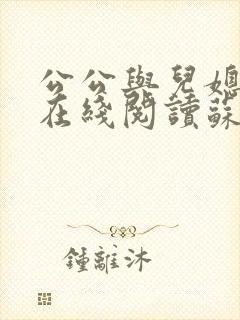 公公與兒媳
在綫閱讀蘇
鍾離沐